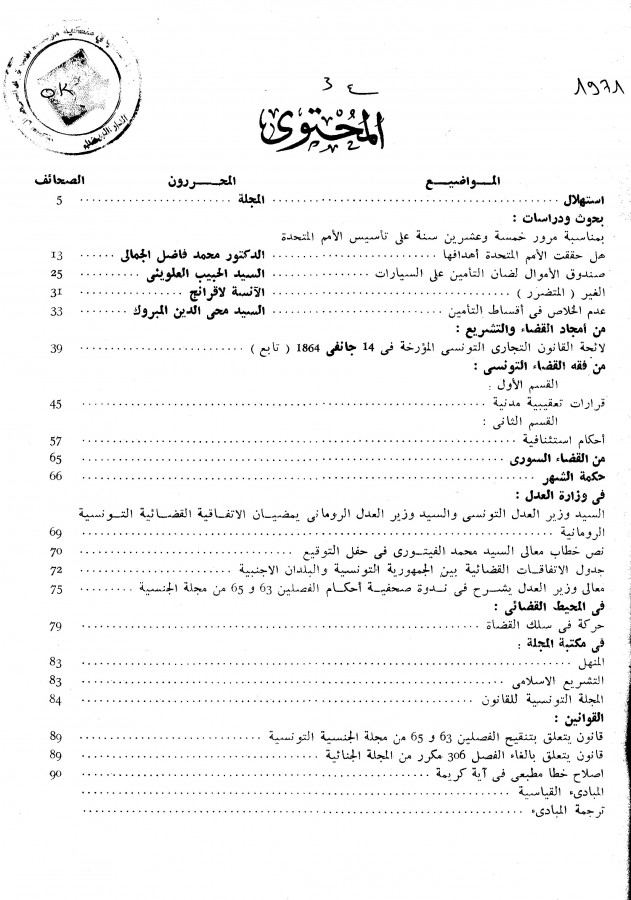 OK
الدار البيضاء
3 ع
1971
المحتوى
المواضيع المحررون الصحائف
استهلال المجلة 5
بحوث ودراسات :
بمناسبة مرور خمسة وعشرين سنة على تاسيس الأمم المتحدة
هل حققت الأمم المتحدة أهدافها الدكتور محمد فاضل الجمالى 13
صندوق الأموال لضمان التأمين على السيارات السيد الحبيب العلوينى 25
الغير ( المتضرر ) الآنسة لاقرانج 31
عدم الخلاص فى أقساط التأمين السيد محى الدين المبروك 33
من أمجاد القضاء والتشريع :
لائحة القانون التجارى التونسى المؤرخة فى 14 جانفى 1864 ( تابع ) 39
من فقه القضاء التونسى :
القسم الأول :
قرارات تعقيبية مدنية 45
القسم الثانى :
أحكام استئنافية 57
من القضاء السورى 65
حكمة الشهر 66
فى وزارة العدل :
السيد وزير العدل التونسى والسيد وزير العدل الرومانى يمضيان الاتفاقية القضائية التونسية
الرومانية 69
نص خطاب معالى السيد محمد الفيتورى فى حفل التوقيع 70
جدول الاتفاقات القضائية بين الجمهورية التونسية والبلدان الاجنبية 72
معالى وزير العدل يشرح فى ندوة صحفية أحكام الفصلين 63 و 65 من مجلة الجنسية 75
فى المحيط القضائى :
حركة فى سلك القضاة 79
فى مكتبة المجلة :
المنهل 83
التشريع الاسلامى 83
المجلة التونسية للقانون 84
القوانين :
قانون يتعلق بتنقيح الفصلين 63 و 65 من مجلة الجنسية التونسية 89
قانون يتعلق بالغاء الفصل 306 مكرر من المجلة الجنائية 89
اصلاح خطا مطبعى فى آية كريمة 90
المبادىء القياسية
ترجمة المبادىء